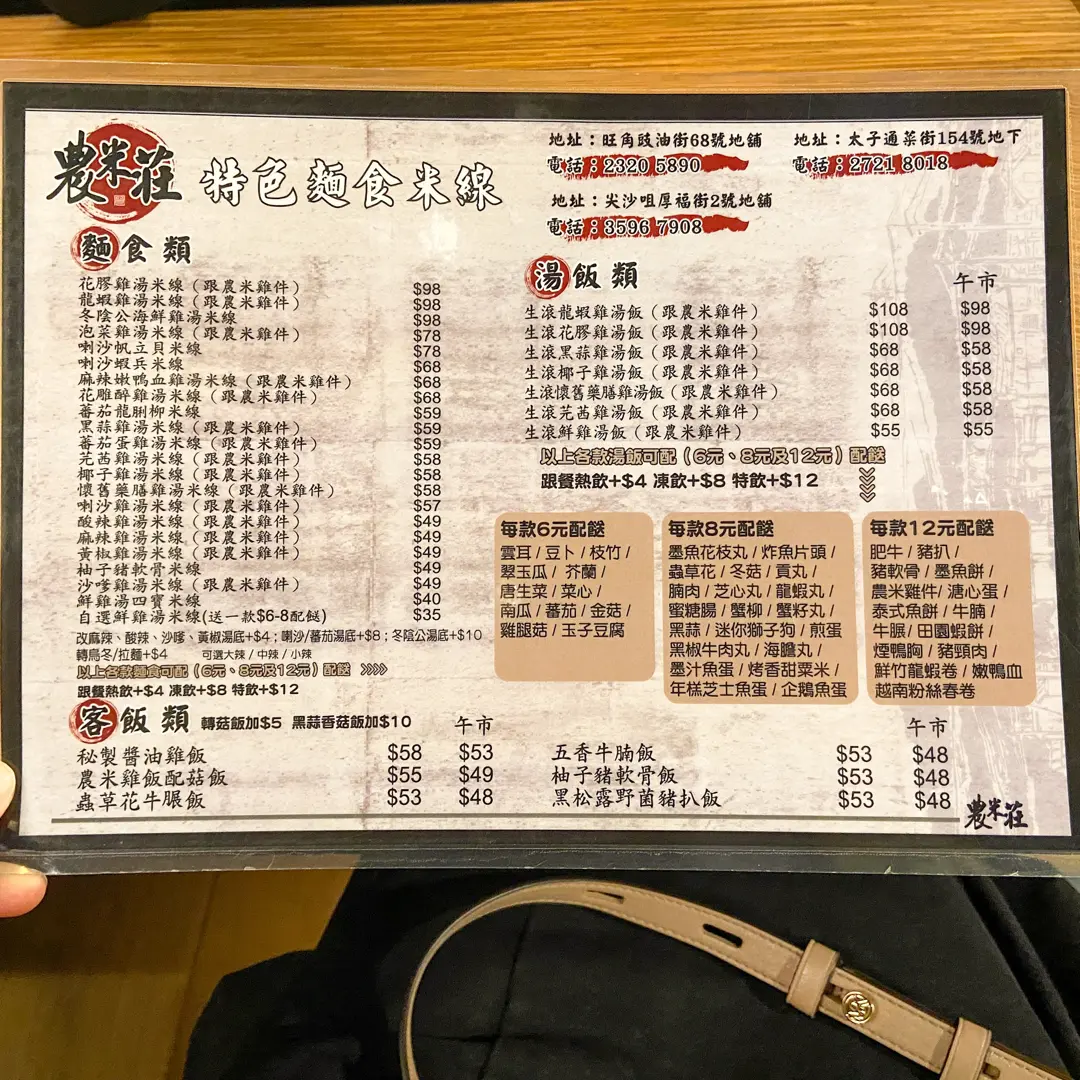 農米莊
特色麵食米線
地址：旺角豉油街68號地舖
電話：2320 5890
地址：太子通菜街154號地下
電話：2721 8018
地址：尖沙咀厚福街2號地舖
電話：3596 7908
麵食類
花膠雞湯米線（跟農米雞件） $98
龍蝦雞湯米線（跟農米雞件） $98
冬陰公海鮮雞湯米線 $98
泡菜雞湯米線（跟農米雞件） $78
喇沙帆立貝米線 $78
喇沙蝦兵米線 $68
麻辣嫩鴨血雞湯米線（跟農米雞件） $68
花雕醉雞湯米線（跟農米雞件） $68
蕃茄龍脷柳米線 $59
黑蒜雞湯米線（跟農米雞件） $59
蕃茄蛋雞湯米線（跟農米雞件） $59
芫茜雞湯米線（跟農米雞件） $58
椰子雞湯米線（跟農米雞件） $58
懷舊藥膳雞湯米線（跟農米雞件） $58
喇沙雞湯米線（跟農米雞件） $57
酸辣雞湯米線（跟農米雞件） $49
麻辣雞湯米線（跟農米雞件） $49
黃椒雞湯米線（跟農米雞件） $49
柚子豬軟骨米線 $49
沙嗲雞湯米線（跟農米雞件） $49
鮮雞湯四寶米線 $40
自選鮮雞湯米線(送一款$6-8配餸) $35
改麻辣、酸辣、沙嗲、黃椒湯底+$4；喇沙/蕃茄湯底+$8；冬陰公湯底+$10
轉烏冬/拉麵+$4 可選大辣 / 中辣 / 小辣
以上各款麵食可配（6元、8元及12元）配餸 >>>>
跟餐熱飲+$4 凍飲+$8 特飲+$12
湯飯類 午市
生滾龍蝦雞湯飯（跟農米雞件） $108 $98
生滾花膠雞湯飯（跟農米雞件） $108 $98
生滾黑蒜雞湯飯（跟農米雞件） $68 $58
生滾椰子雞湯飯（跟農米雞件） $68 $58
生滾懷舊藥膳雞湯飯（跟農米雞件） $68 $58
生滾芫茜雞湯飯（跟農米雞件） $68 $58
生滾鮮雞湯飯（跟農米雞件） $55 $55
以上各款湯飯可配（6元、8元及12元）配餸
跟餐熱飲+$4 凍飲+$8 特飲+$12
每款6元配餸
雲耳 / 豆卜 / 枝竹 /
翠玉瓜 / 芥蘭 /
唐生菜 / 菜心 /
南瓜 / 蕃茄 / 金菇 /
雞腿菇 / 玉子豆腐
每款8元配餸
墨魚花枝丸 / 炸魚片頭 /
蟲草花 / 冬菇 / 貢丸 /
腩肉 / 芝心丸 / 龍蝦丸 /
蜜糖腸 / 蟹柳 / 蟹籽丸 /
黑蒜 / 迷你獅子狗 / 煎蛋
黑椒牛肉丸 / 海膽丸 /
墨汁魚蛋 / 烤香甜粟米 /
年糕芝士魚蛋 / 企鵝魚蛋
每款12元配餸
肥牛 / 豬扒 /
豬軟骨 / 墨魚餅 /
農米雞件 / 溏心蛋 /
泰式魚餅 / 牛腩 /
牛𦟌 / 田園蝦餅 /
煙鴨胸 / 豬頸肉 /
鮮竹龍蝦卷 / 嫩鴨血
越南粉絲春卷
客飯類 轉菇飯加$5 黑蒜香菇飯加$10 午市
秘製醬油雞飯 $58 $53
農米雞飯配菇飯 $55 $49
蟲草花牛𦟌飯 $53 $48
午市
五香牛腩飯 $53 $48
柚子豬軟骨飯 $53 $48
黑松露野菌豬扒飯 $53 $48
農米莊